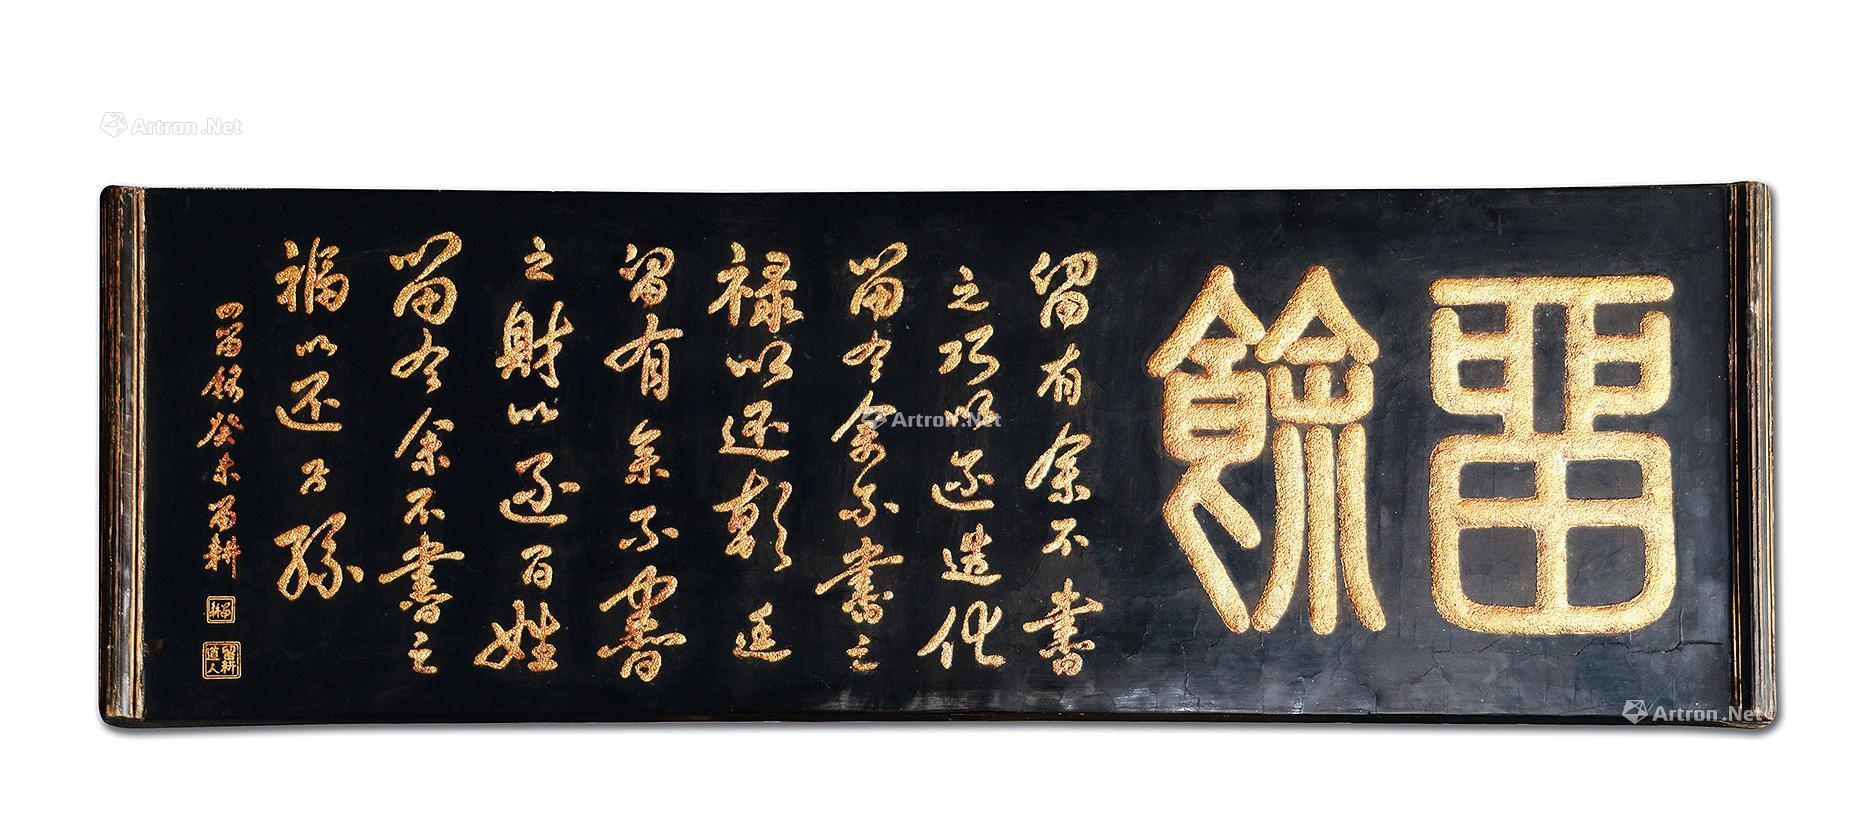 留餘
留有余不盡
之巧以還造化
留有余不盡之
禄以還朝廷
留有余不盡
之財以還百姓
留有余不盡之
福以还子孫
四留銘癸未留耕
留耕
留耕道人
Artron.Net
Artron.Net
Artron.Net